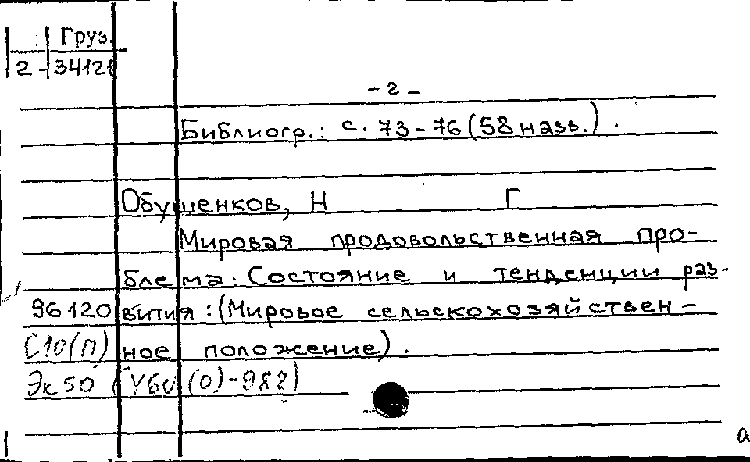 Груз.
2-34121
- 2 -
Библиогр.: с. 73-76 (58 назв.).
Обушенков, Н Г
Мировая продовольственная про-
блема: Состояние и тенденции раз-
96120 вития: (Мировое сельскохозяйствен-
С10(п) ное положение).
Эк50 (У60(0)-982)
а